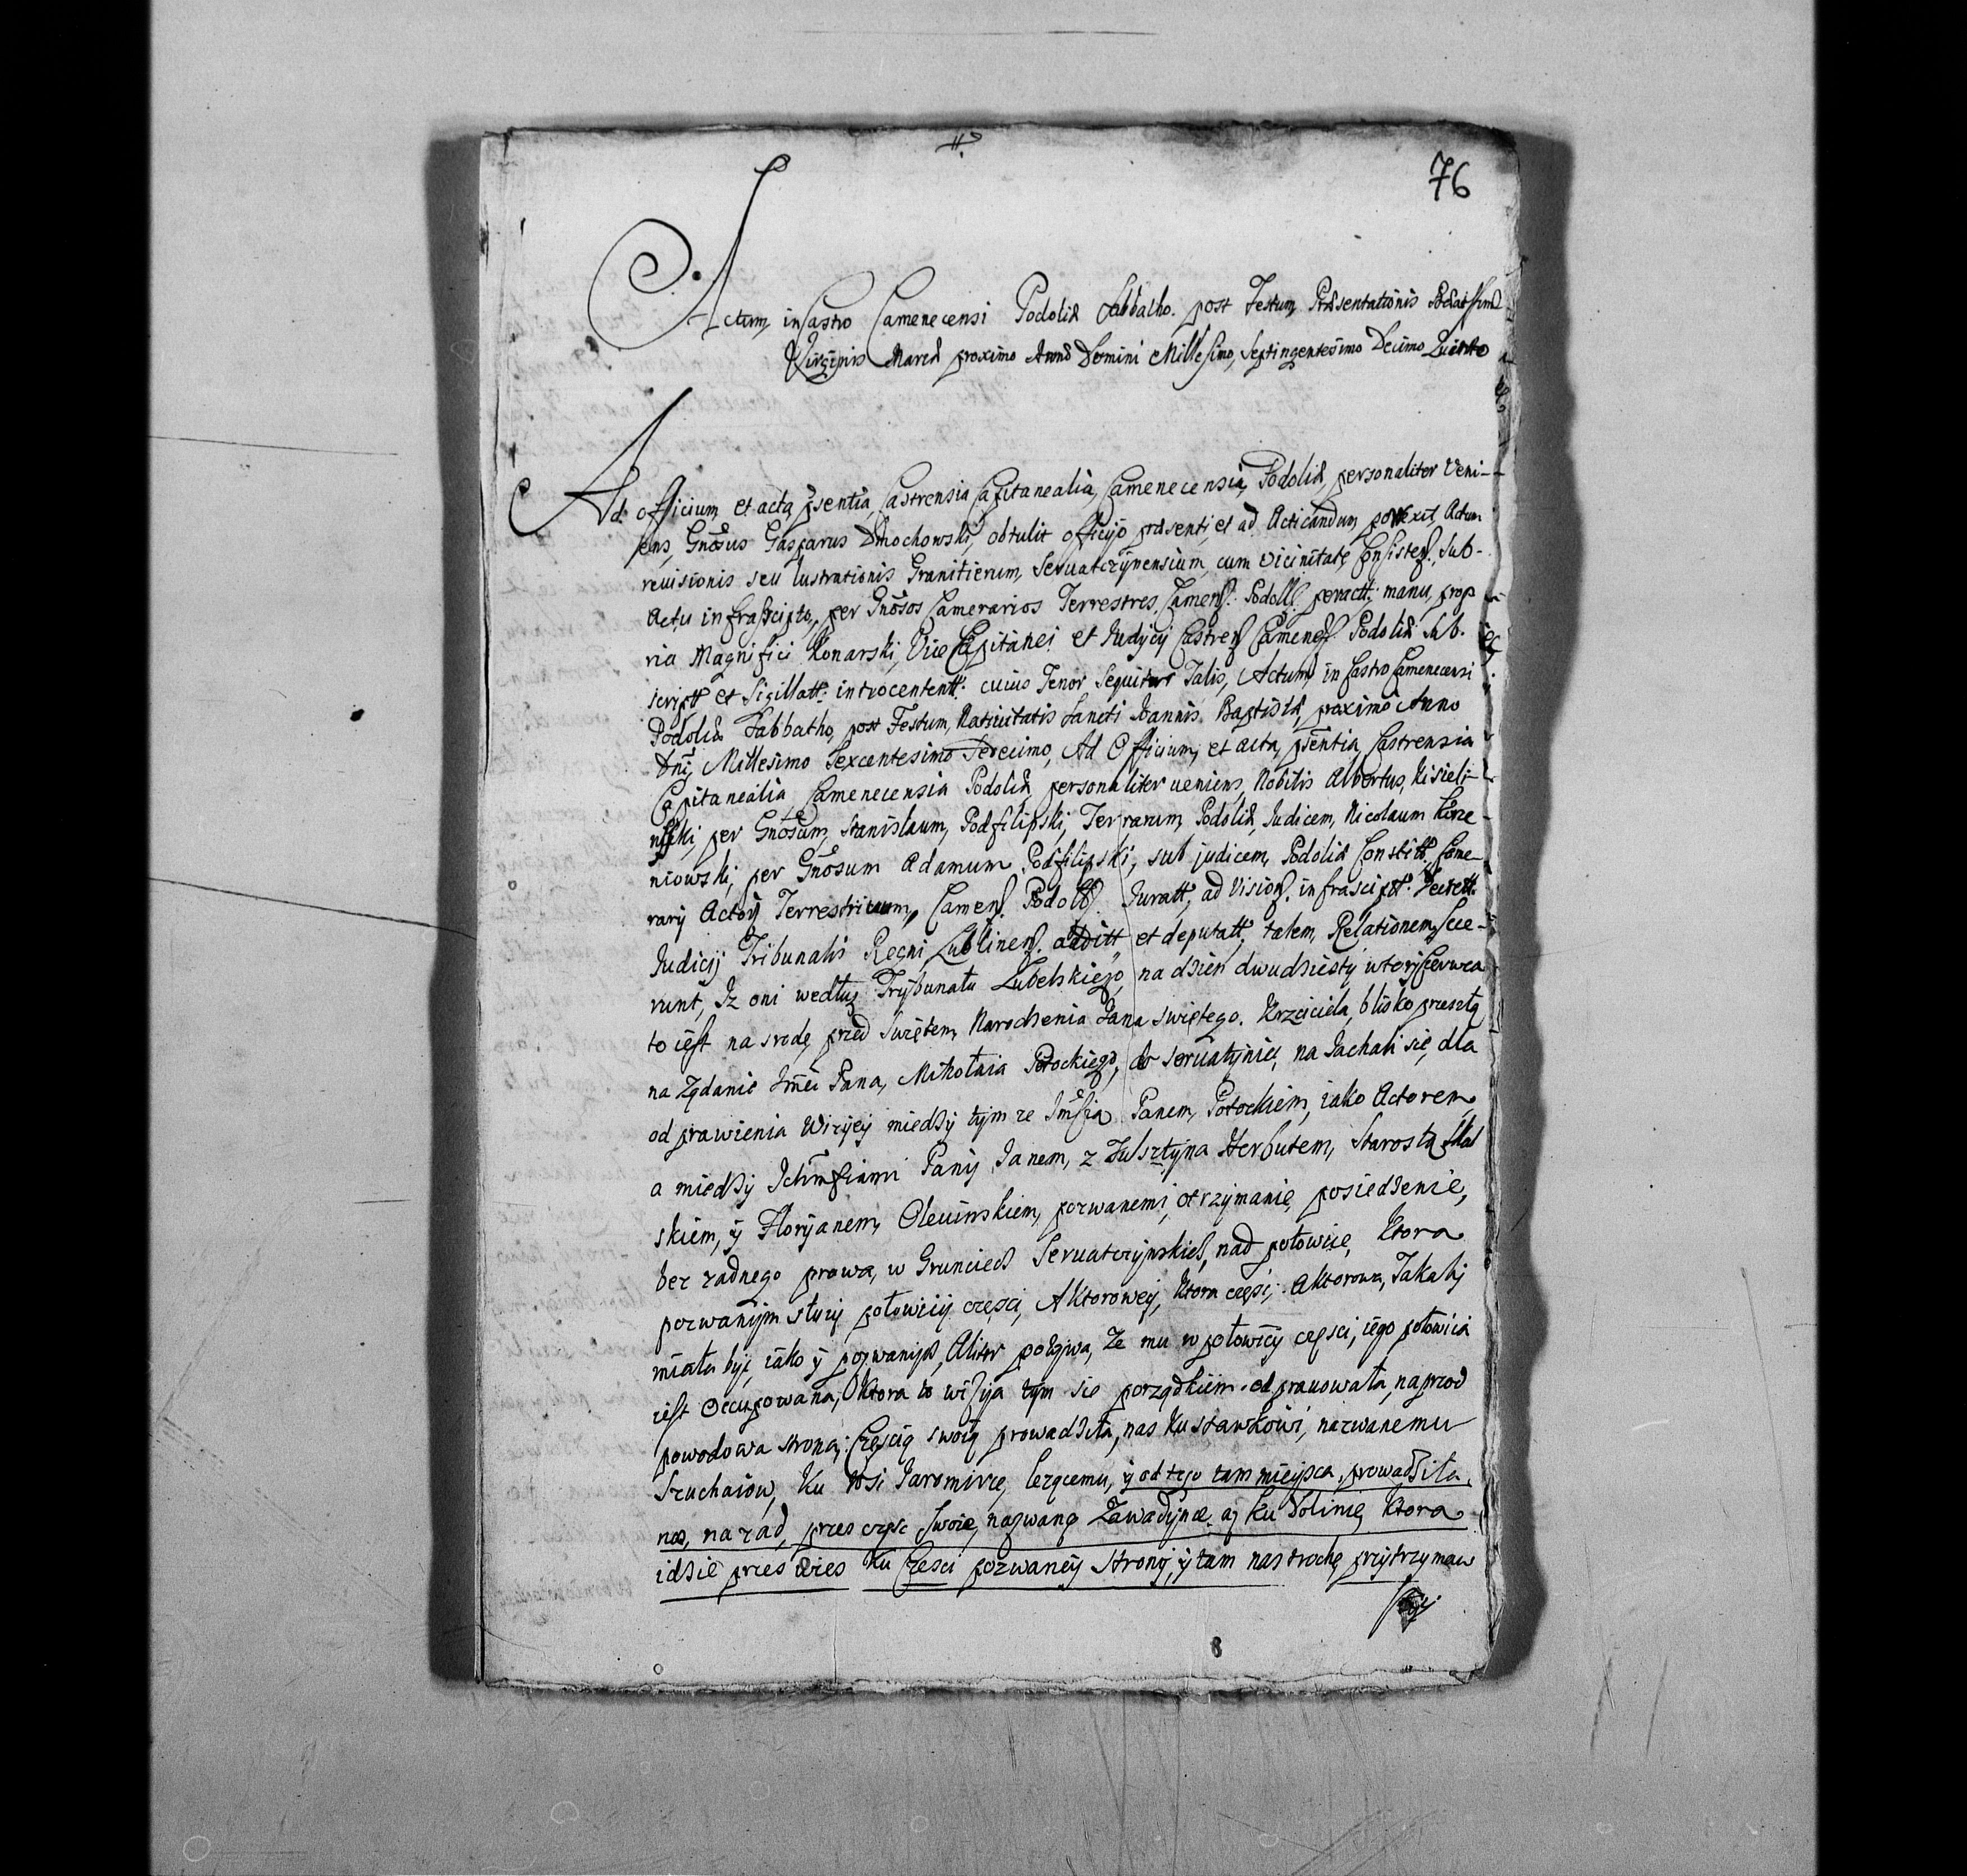 76
Actum in Castro Camenecensi Podoliæ Sabbatho post Festum Præsentationis Beatissimæ
Virginis Mariæ proximo Anno Domini Millesimo, Septingentesimo Decimo Quinto
Ad officium et acta psentia, Castrensia Capitanealia, Camenecensia, Podoliæ, personaliter Veni-
ens, Gnosus Gasparus Dmochowski, obtulit officijo præsenti, et ad Acticandum porrexit Actum
reuisionis seu lustrationis Granitierum, Seruatczÿnensium, cum vicinitate Consisten. sub-
Actu infrascripto, per Gnosos Camerarios Terrestres Camen. Podoll. peractt. manu, prop
ria Magnifici Konarski, Vice Capitanei et Judycij Castren Camenen Podoliæ Sub-
scriptt et Sigillatt. introcontentt. cuius Tenor Sequitur Talis, Actum in Castro Camenecensi
Podoliæ Sabbatho, post Festum, Natiuitatis Sancti Joannis Baptistæ, proximo Anno
Dni, Millesimo Sexcentesimo Decimo, Ad Officium, et acta, psentia, Castrensia
Capitanealia, Camenecensia Podoliæ, personaliter ueniens, Nobilis Albertus, Kisieli-
nski, per Gnosum, Stanislaum, Podfilipski, Terrarum, Podoliæ, Judicem, Nicolaum Korze-
niowski, per Gnosum Adamum Podfilipski, sub judicem, Podoliæ Constitt. Came-
rarij Terrestrium, Camen. Podoll. Juratt, ad Vision. infrascipt. Decrett.
Judicij Tribunalis Regni Lublinen. additt et deputatt. talem, Relationem fece-
runt, Iz oni według Trybunału Lubelskiego, na dzien dwudziesty wtory Czerwca
to iest na srodę przed Swiętem, Narodzenia Jana Swiętego. Krzciciela, blisko przeszłą
na Ządanie Jmci Pana, Mikołaia Potockiego, do Seruatyniec, na Jachali się, dla
odprawienia Wizÿeÿ miedzÿ tÿm ze Panem, Potockiem, iako Actorem,
a miedzÿ Panÿ Janem, z Fulsztyna Herbutem, Starostą Skal
skiem, ÿ Floryanem, Oleuinskiem, pozwanemi, otrzymanie, posiedzenie,
bez zadnego prawa, w Grunciech Seruatczÿnskich, nad połowicę, Ktora
pozwanÿm słuzÿ połowicÿ częsci, Aktoroweÿ, Ktora częsc, Aktorowa, Takasz
miała byc, iako ÿ pozwanÿch, Aliter pokzÿwa, Ze mu w połowicÿ częsci, iego połowica
iest Occupowana, Ktora to wizÿja tÿm sie porządkiem odprauowała, naprzod
powodowa strona, Częscią swoią prowadziła, nas Ku stawkowi, nazwanemu
Szuchaiow, Ku Wsi Jaromirce, lezącemu, ÿ od tego tam mieÿsca, prowadziła
nas, nazad, przes częsc swoię, nazwaną Zawadÿnce, az ku Dolinie, Ktora
idzie przes wies Ku Częsci pozwaneÿ stronÿ, ÿ tam nas trochę przÿtrzymaw
8